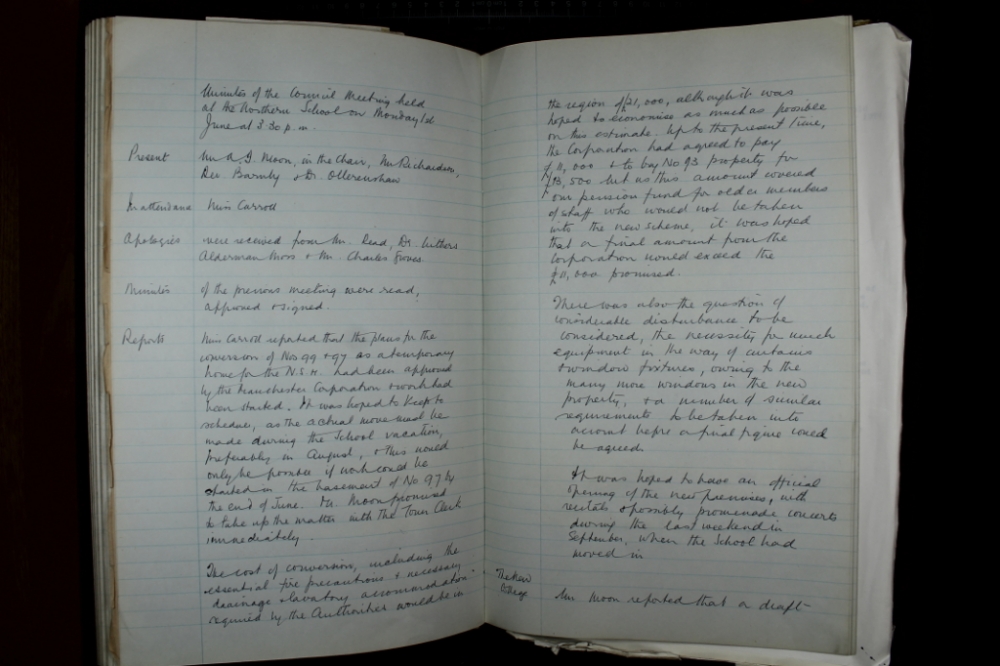 Minutes of the Council Meeting held
at the Northern School on Monday 1st
June at 3.30 p.m.
Present Mr A. J. Moon, in the Chair, Mr Richardson,
Rev Barnby + Dr. Ollerenshaw
In attendance Miss Carroll
Apologies were received from Mr. Read, Dr. Withers
Alderman Moss + Mr. Charles Groves
Minutes of the previous meeting were read,
approved + signed.
Reports Miss Carroll reported that the plans for the
conversion of Nos 99 + 97 as a temporary
home for the N.S.M. had been approved
by the Manchester Corporation + work had
been started. It was hoped to keep to
schedule, as the actual move must be
made during the School vacation,
preferably in August, + this would
only be possible if work could be
started in the basement of No 97 by
the end of June. Mr. Moon promised
to take up the matter with the Town Clerk
immediately.
The cost of conversion, including the
essential fire precautions + necessary
drainage + lavatory accommodation
required by the Authorities would be in
the region of £21,000, although it was
hoped to economise as much as possible
on this estimate. Up to the present time,
the Corporation had agreed to pay
£11,000 + to buy No 93 property for
£13,500 but as this amount covered
our pension fund for older members
of staff who would not be taken
into the new scheme, it was hoped
that a final amount from the
Corporation would exceed the
£11,000 promised.
There was also the question of
considerable disturbance to be
considered, the necessity for much
equipment in the way of curtains
+ window fixtures, owing to the
many more windows in the new
property, + a number of similar
requirements to be taken into
account before a final figure could
be agreed.
It was hoped to have an official
opening of the new premises, with
recitals + possibly promenade concerts
during the last weekend in
September, when the School had
moved in
The New
College Mr Moon reported that a draft